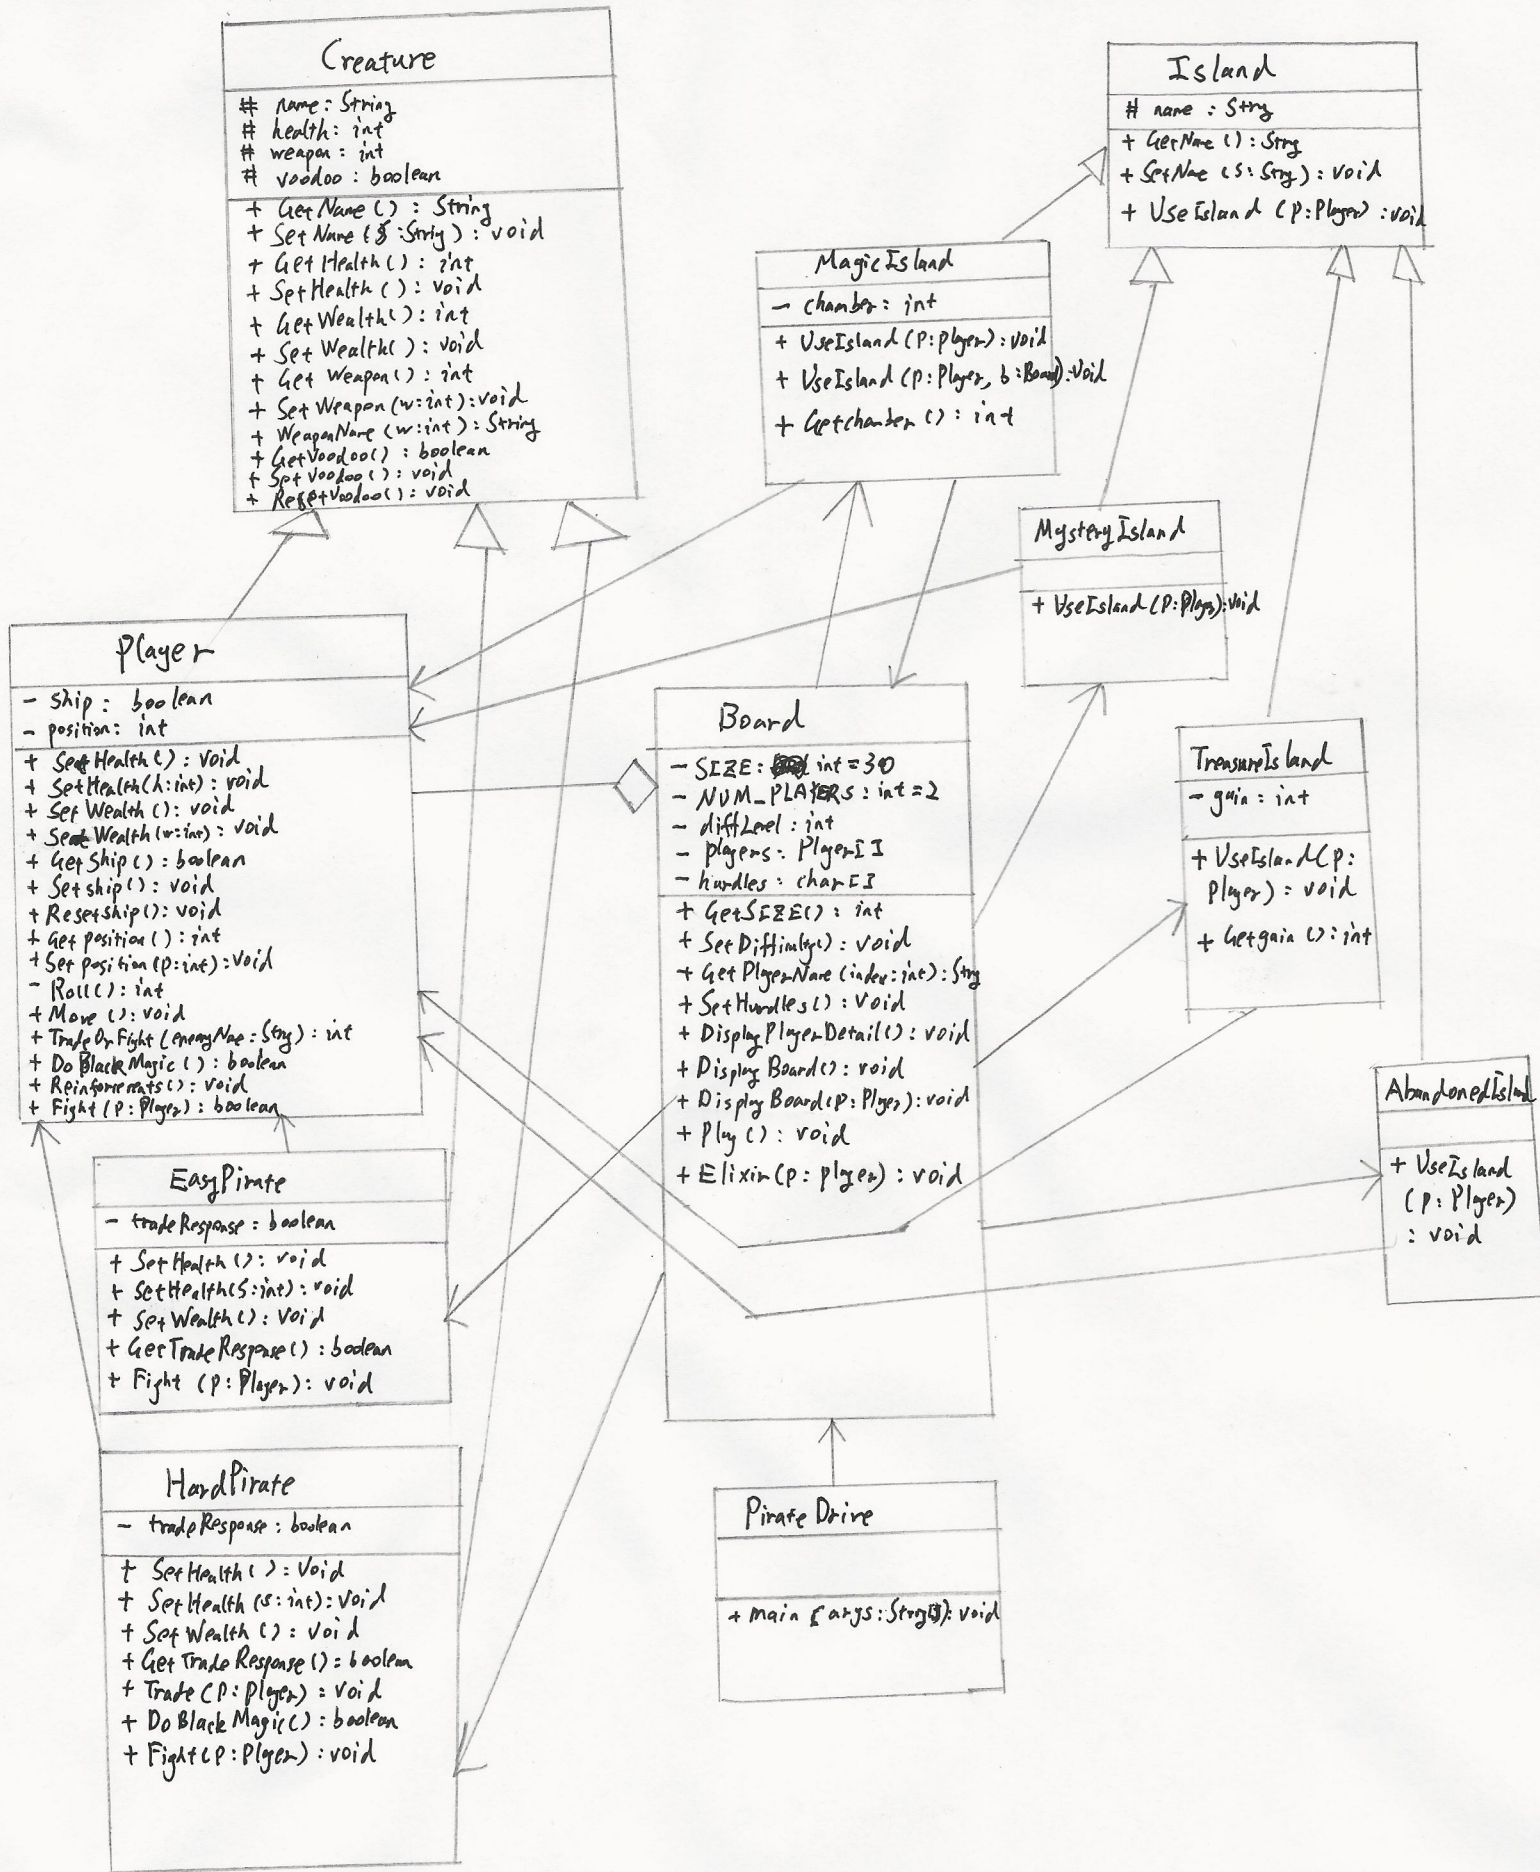 Creature
# name: String
# health: int
# weapon: int
# voodoo: boolean
+ GetName(): String
+ SetName(S:Strig): void
+ GetHealth(): int
+ SetHealth(): void
+ GetWealth(): int
+ SetWealth(): void
+ Get Weapon(): int
+ SetWeapon(w:int): void
+ WeaponName(w:int): String
+ GetVoodoo(): boolean
+ SetVoodoo(): void
+ ResetVoodoo(): void
Island
# name: Strg
+ GetName(): Strg
+ SetNae(s:Strg): void
+ UseIsland(p:Player): void
MagicIsland
- chamber: int
+ UseIsland(p:player): void
+ UseIsland(p:Player, b:Board): void
+ Getchamber(): int
MysteryIsland
+ UseIsland(p:Player): void
Player
- ship: boolean
- position: int
+ SetHealth(): void
+ SetHealth(h:int): void
+ Set Wealth(): void
+ Set Wealth(w:int): void
+ GetShip(): boolean
+ Setship(): void
+ Resetship(): void
+ Get position(): int
+ Set position(p:int): void
- Roll(): int
+ Move(): void
+ TradeOrFight(enemyNae:Strg): int
+ Do BlackMagic(): boolean
+ Reinforcements(): void
+ Fight(p:Player): boolean
Board
- SIZE: int = 30
- NUM_PLAYERS: int = 2
- diffLevel: int
- players: Player[]
- hurdles: char[]
+ GetSIZE(): int
+ SetDifficulty(): void
+ GetPlayerName(index:int): Strg
+ SetHurdles(): void
+ DisplayPlayerDetail(): void
+ Display Board(): void
+ Display Board(p:Player): void
+ Play(): void
+ Elixir(p:player): void
TreasureIsland
- gain: int
+ UseIsland(p:
Player): void
+ Getgain(): int
AbandonedIsland
+ UseIsland
(p:Player)
: void
EasyPirate
- tradeResponse: boolean
+ SetHealth(): void
+ SetHealth(s:int): void
+ SetWealth(): void
+ GetTradeResponse(): boolean
+ Fight (p:Player): void
HardPirate
- tradeResponse: boolean
+ SetHealth(): void
+ SetHealth(s:int): void
+ SetWealth(): void
+ GetTradeResponse(): boolean
+ Trade(p:Player): void
+ DoBlackMagic(): boolean
+ Fight(p:Player): void
PirateDrive
+ main(args:Strg[]): void